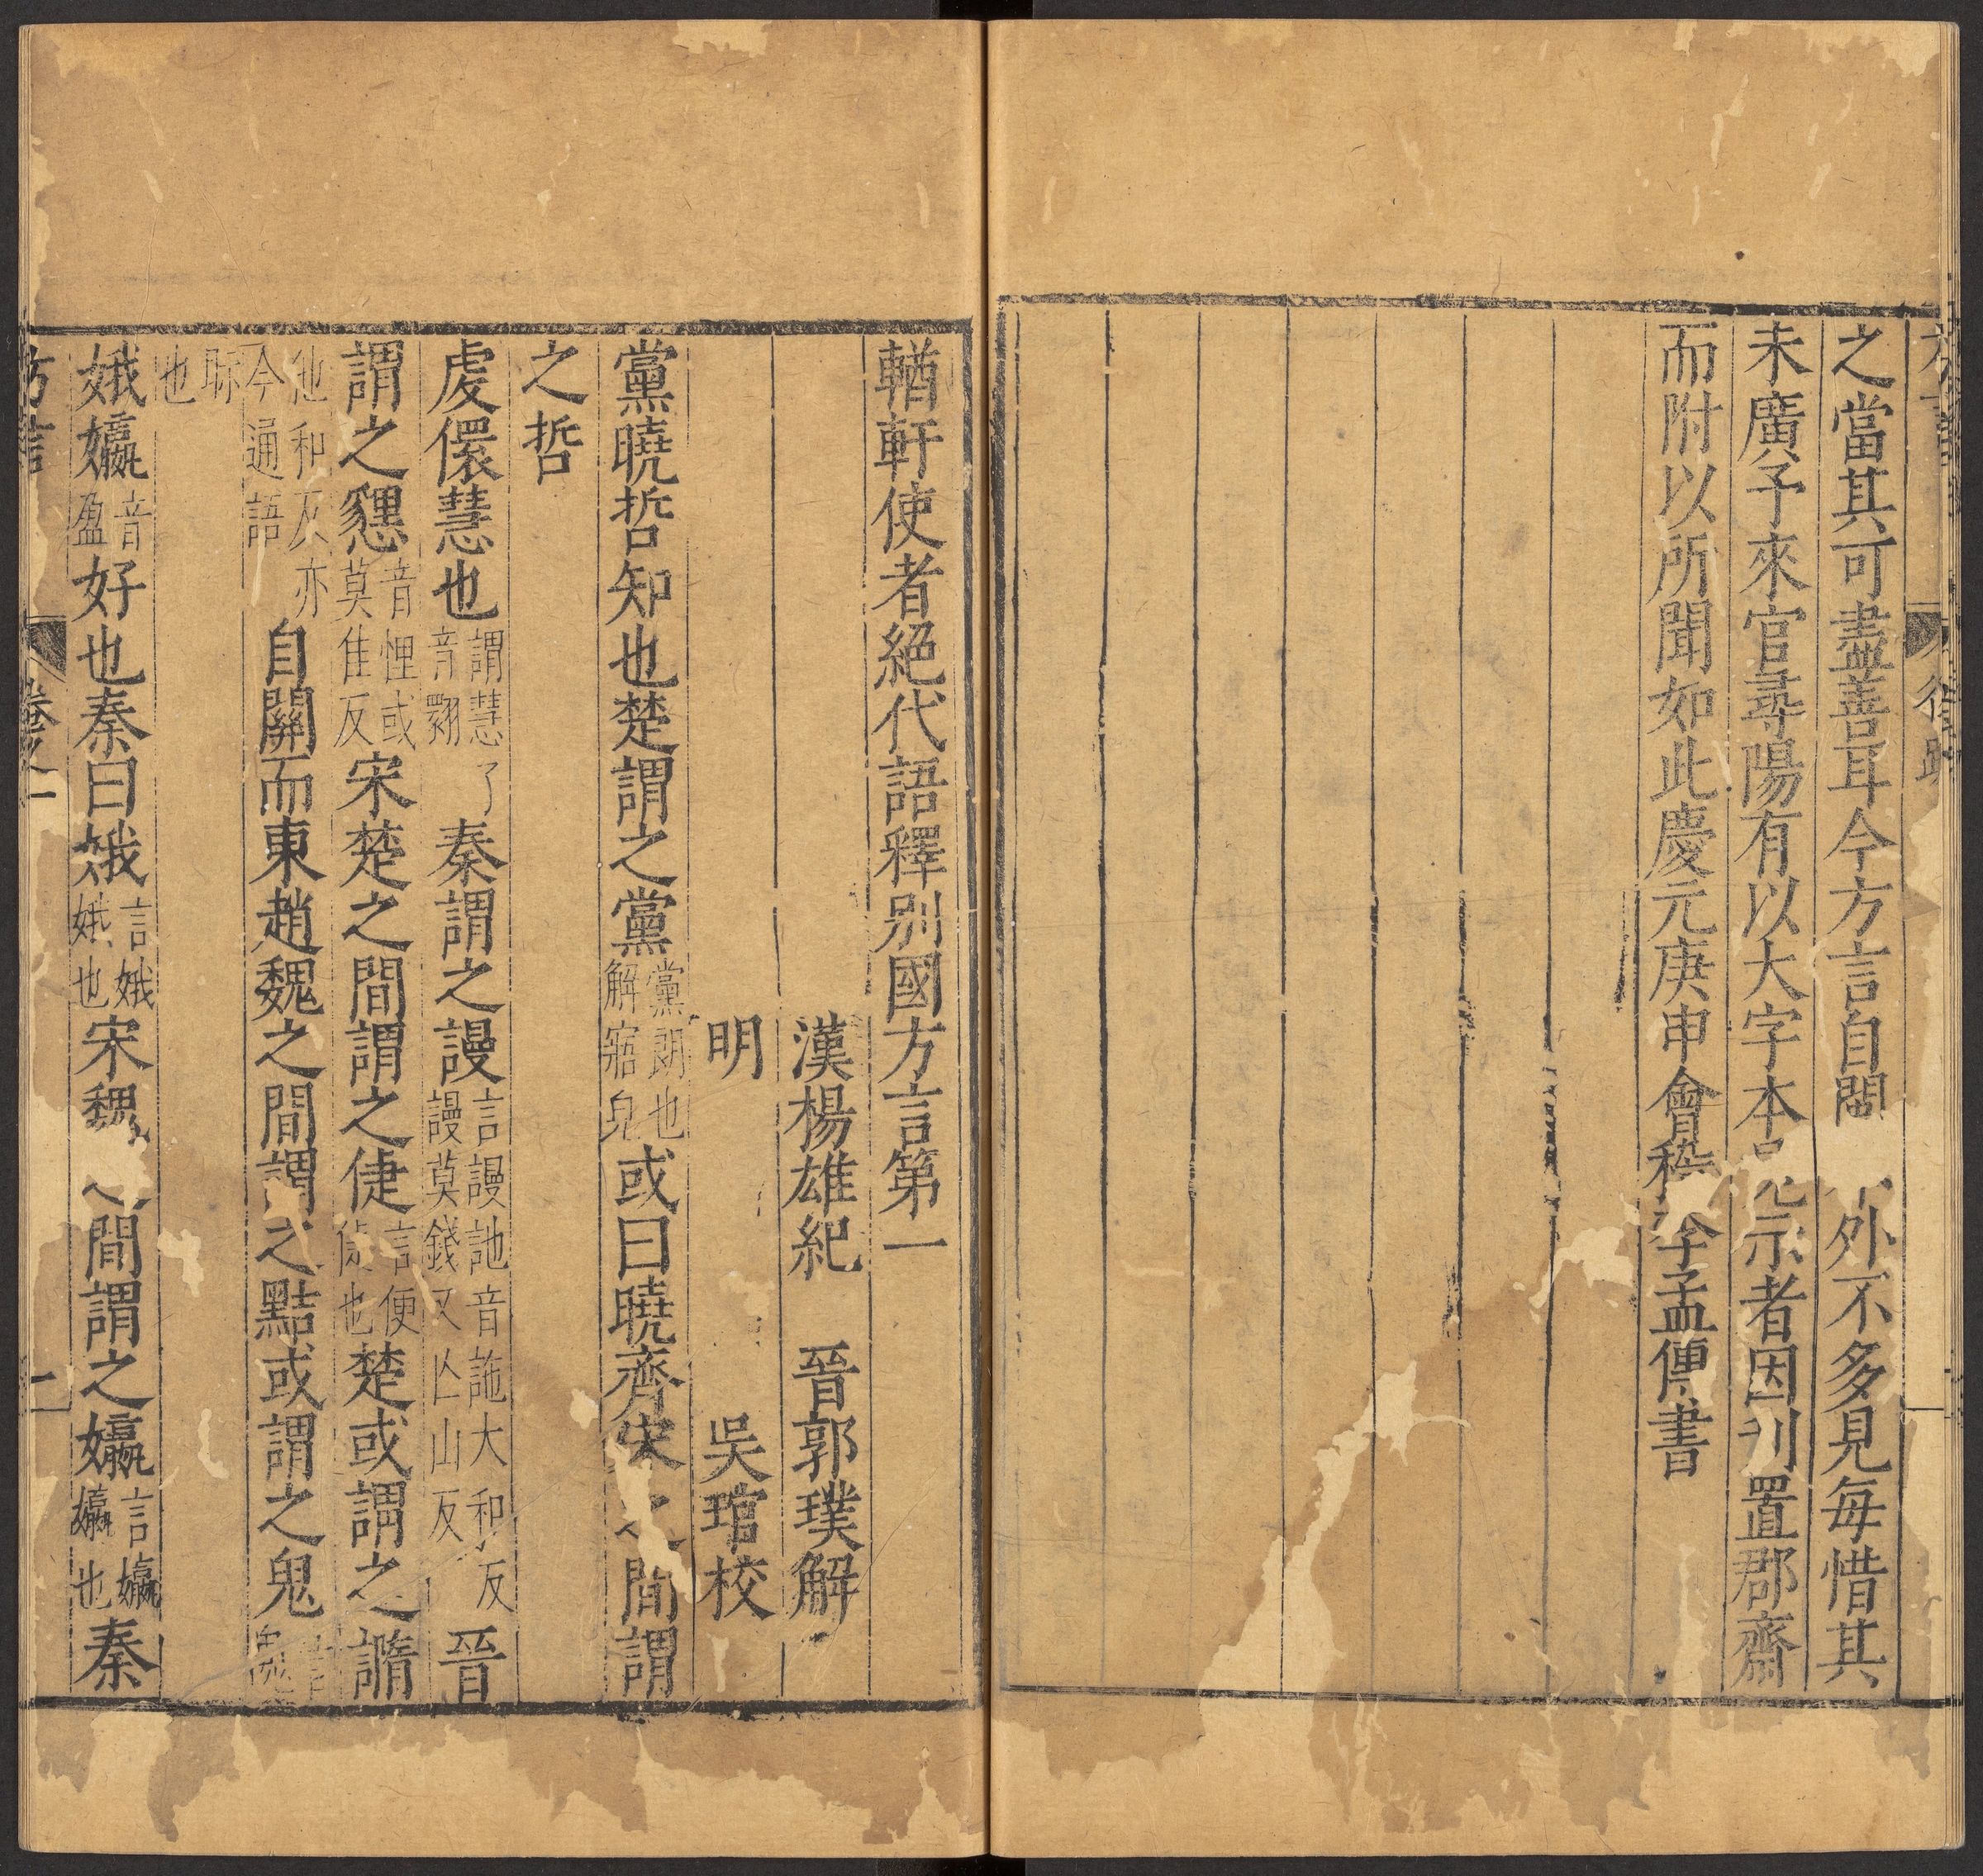 之當其可盡善耳今方言自閩外不多見每惜其
未廣予來官尋陽有以大字本見示者因刋置郡齋
而附以所聞如此慶元庚申會稽李孟傳書
輶軒使者絕代語釋别國方言第一
漢楊雄紀 晉郭璞解
明 吳琯校
黨曉哲知也楚謂之黨黨朗也解寤皃或曰曉齊宋之間謂
之哲
虔儇慧也謂慧了音翾秦謂之謾言謾訑音詑大和反謾莫錢又亡山反晉
謂之㦟音悝或莫佳反宋楚之間謂之倢言便倢也楚或謂之䜏
他和反亦今通語自關而東趙魏之間謂之黠或謂之鬼言鬼
眎也
娥㜲音盈好也秦曰娥言娥娥也宋魏之間謂之㜲言㜲㜲也秦
方言 卷之一 一